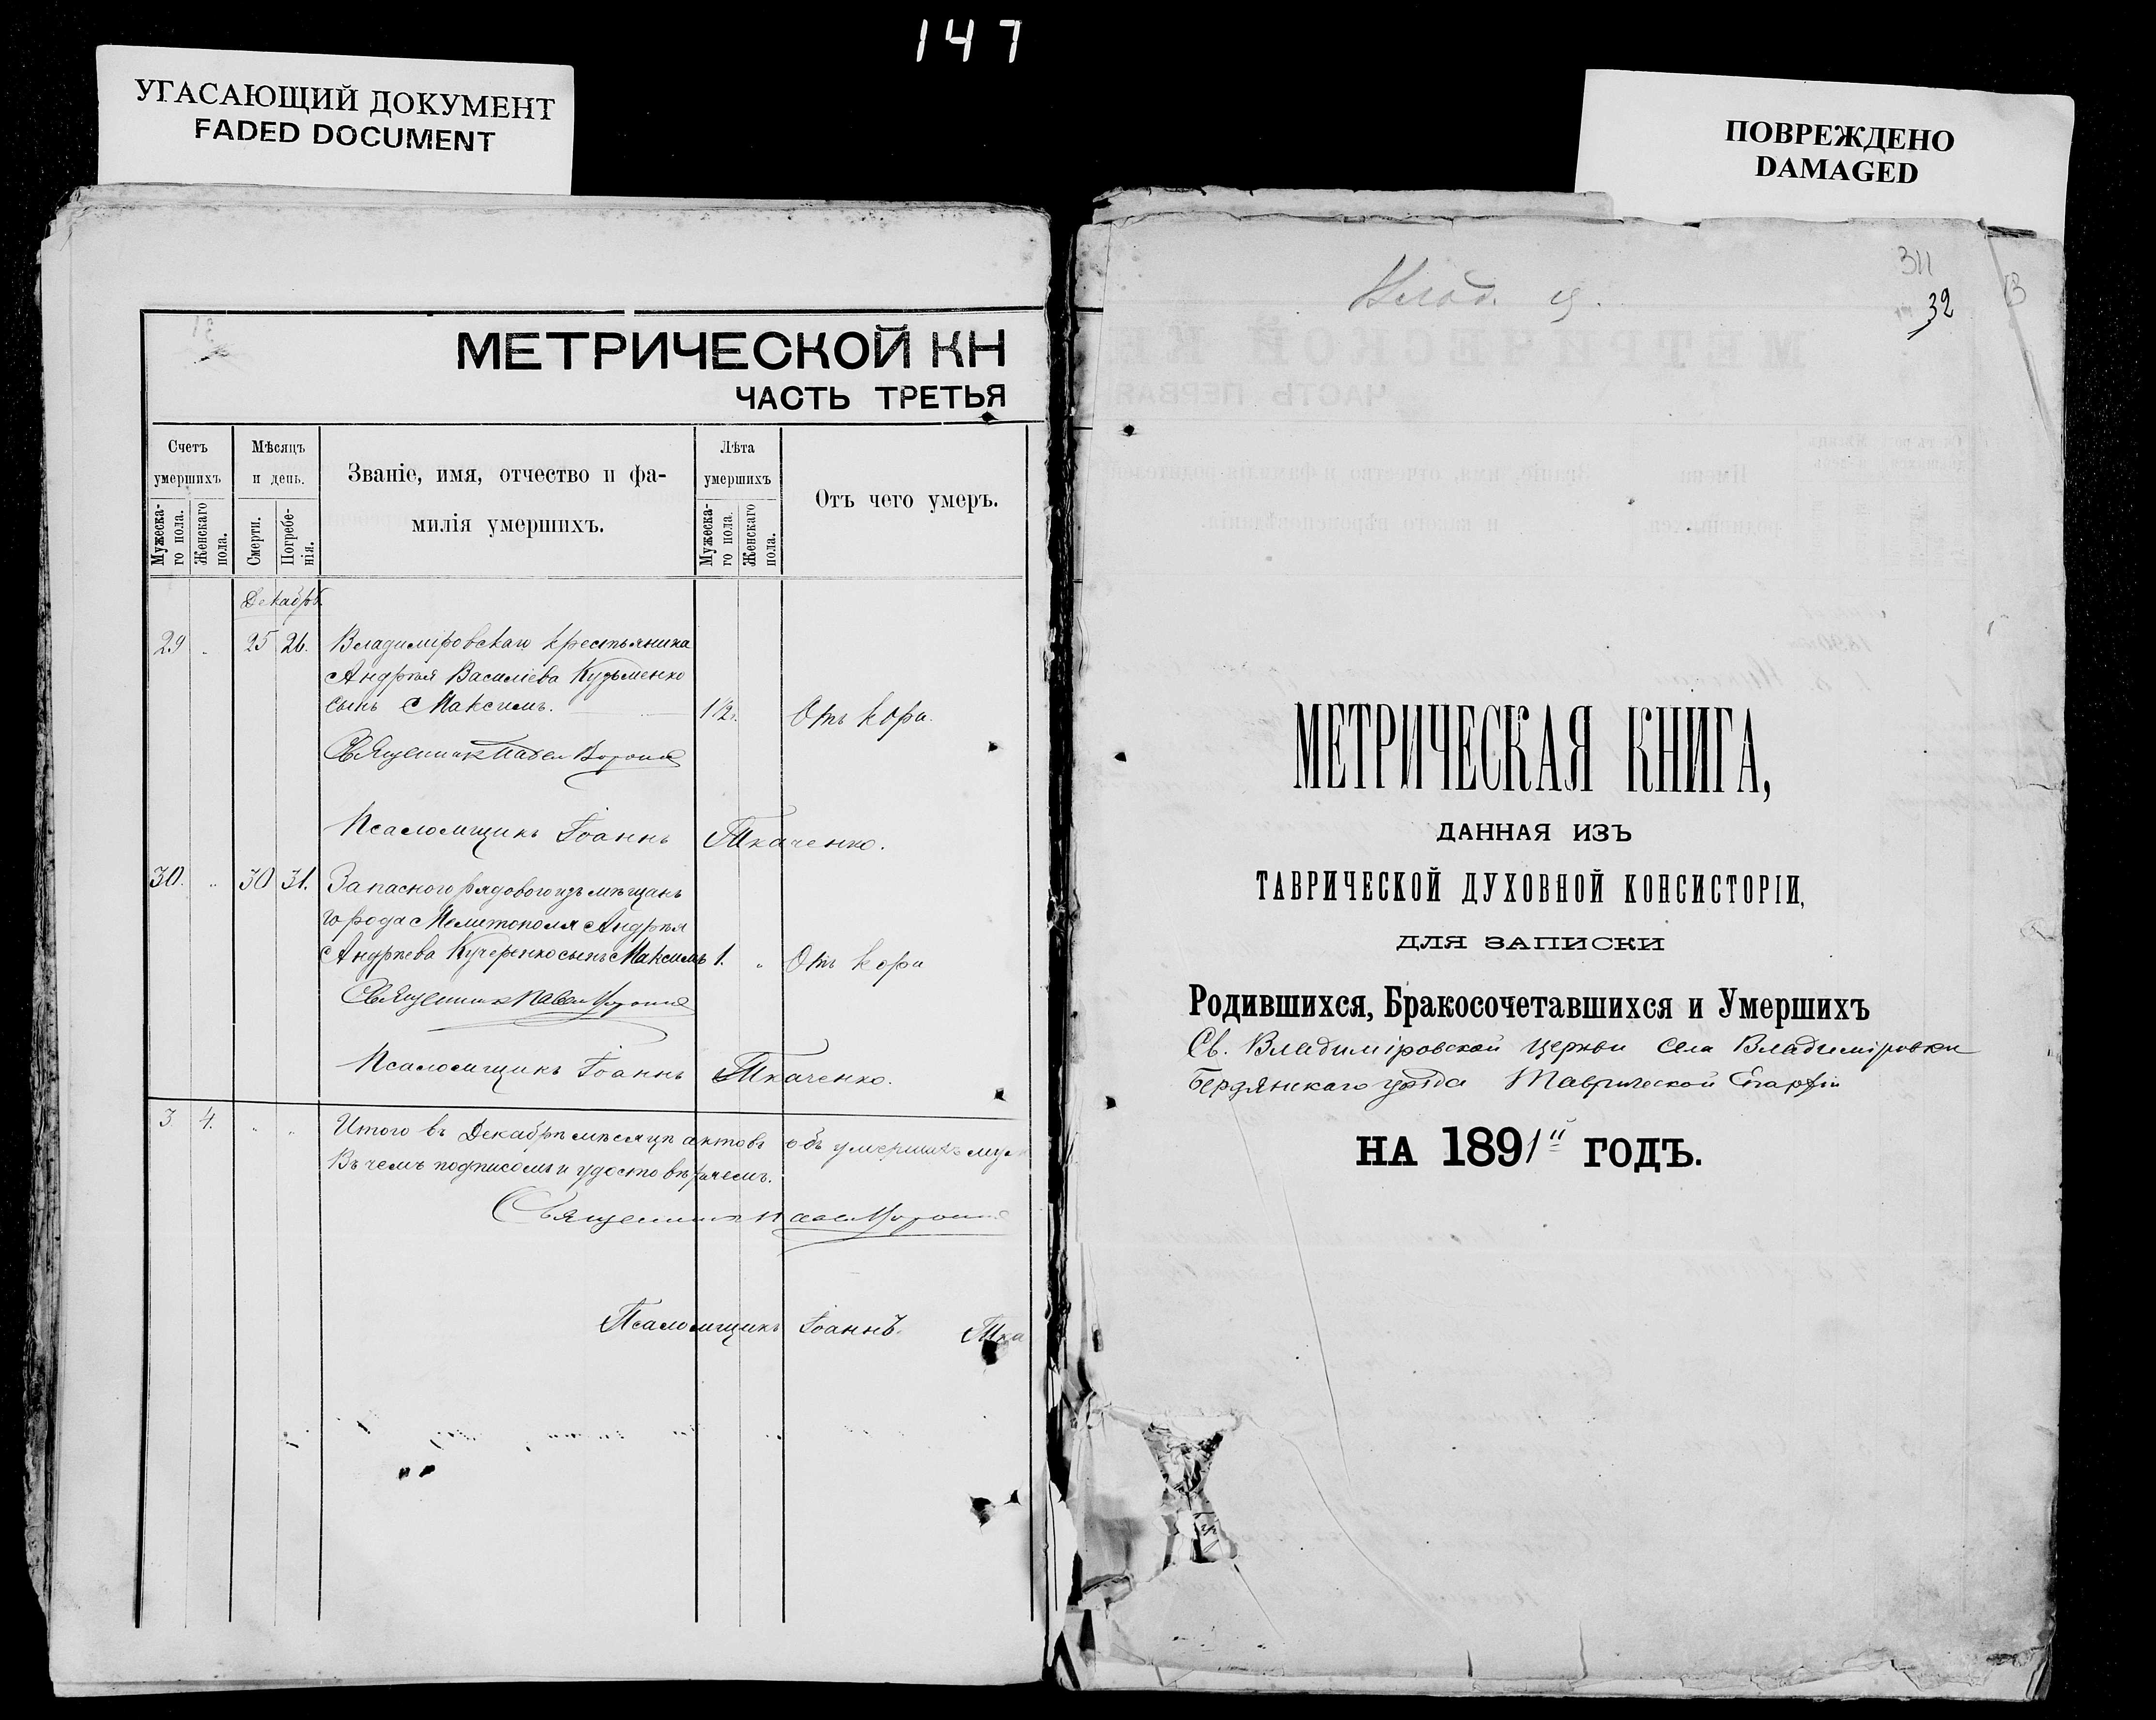 147
УГАСАЮЩИЙ ДОКУМЕНТ
FADED DOCUMENT
ПОВРЕЖДЕНО
DAMAGED
МЕТРИЧЕСКОЙ КН
ЧАСТЬ ТРЕТЬЯ
Счетъ умершихъ
Мужеска-го пола.
Женскаго пола.
Мѣсяцъ и день.
Смерти.
Погребе-нія.
Званіе, имя, отчество и фа-
милія умершихъ.
Лѣта умершихъ
Мужеска-го пола.
Женскаго пола.
Отъ чего умеръ.
Декабрь
29 25 26. Владиміровскаго крестьянина
Андрея Василіева Кузьменко
сынъ Максимъ. 1½. Отъ кори.
Священникъ Павелъ
Псаломщикъ Іоаннъ Ткаченко.
30. 30 31. Запаснаго рядового изъ мѣщанъ
города Мелитополя Андрея
Андреева Кучеренко сынъ Максимъ 1. Отъ кори
Священникъ Павелъ
Псаломщикъ Іоаннъ Ткаченко.
3 4. Итого въ Декабрѣ мѣсяцѣ актовъ объ умершихъ
Въ чемъ подписомъ и удостовѣряемъ.
Священникъ Павелъ
Псаломщикъ Іоаннъ. Тка
311
32
МЕТРИЧЕСКАЯ КНИГА,
ДАННАЯ ИЗЪ
ТАВРИЧЕСКОЙ ДУХОВНОЙ КОНСИСТОРІИ,
ДЛЯ ЗАПИСКИ
Родившихся, Бракосочетавшихся и Умершихъ
Св. Владиміровской церкви села Владиміровки
Бердянскаго уѣзда Таврической Епархіи
НА 1891й ГОДЪ.